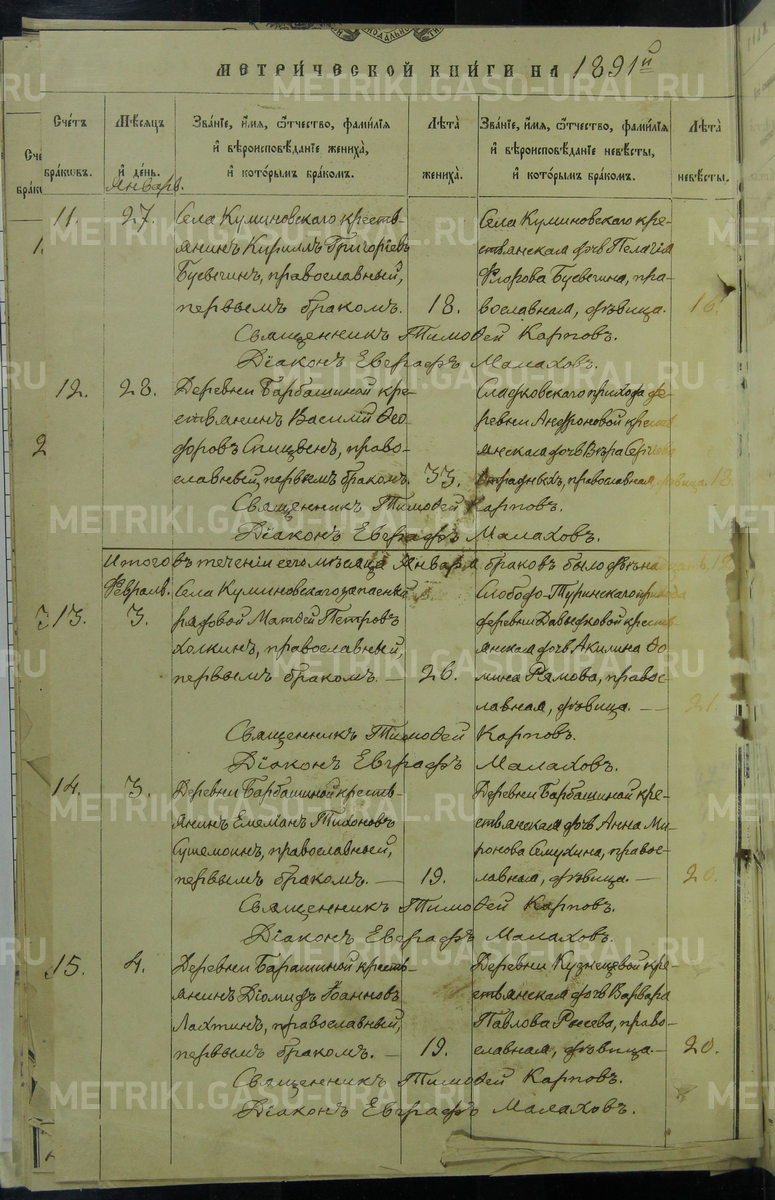 МЕТРИ́ЧЕСКОЙ КНИ́ГИ НА 1891й
Счетъ браковъ.
Мѣсяцъ и день.
Январь.
Званіе, имя, отчество, фамилія и вѣроисповѣданіе жениха, и которымъ бракомъ.
Лѣта жениха.
Званіе, имя, отчество, фамилія и вѣроисповѣданіе невѣсты, и которымъ бракомъ.
Лѣта невѣсты.
11. 27.
Села Куминовскаго кресть-
янинъ Кириллъ Григоріевъ
православный,
первымъ бракомъ. 18.
Села Куминовскаго кре-
стьянская дочь Пелагія
Флорова пра-
вославная, дѣвица. 16.
Священникъ Тимоѳей Карповъ.
Діаконъ Евграфъ Малаховъ.
12. 28.
Деревни Барбашиной кре-
стьянинъ Василій Ѳео-
доровъ Спицынъ, право-
славный, первымъ бракомъ. 33.
Сладковскаго прихода де-
ревни Андроновой кресть-
янская дочь Вѣра Сергіева
православная, дѣвица. 18.
Священникъ Тимоѳей Карповъ.
Діаконъ Евграфъ Малаховъ.
Итого въ теченіи сего мѣсяца Января браковъ было 12
Февраль.
13. 3.
Села Куминовскаго запасный
рядовой Матѳей Петровъ
Холкинъ, православный,
первымъ бракомъ. — 26.
Слободо-Туринскаго прихода
деревни Давыдковой кресть-
янская дочь Акилина Ѳо-
мина правос-
лавная, дѣвица. — 21.
Священникъ Тимоѳей Карповъ.
Діаконъ Евграфъ Малаховъ.
14. 3.
Деревни Барбашиной кресть-
янинъ Емеліанъ Тихоновъ
православный,
первымъ бракомъ. — 19.
Деревни Барбашиной кре-
стьянская дочь Анна Ми-
ронова Семухина, правос-
лавная, дѣвица. — 20.
Священникъ Тимоѳей Карповъ.
Діаконъ Евграфъ Малаховъ.
15. 4.
Деревни Барашиной кресть-
янинъ Діомидъ Іоанновъ
Лахтинъ, православный,
первымъ бракомъ. — 19.
Деревни Кузнецовой кре-
стьянская дочь Варвара
Павлова право-
славная, дѣвица. — 20.
Священникъ Тимоѳей Карповъ.
Діаконъ Евграфъ Малаховъ.
METRIKI.GASO-URAL.RU